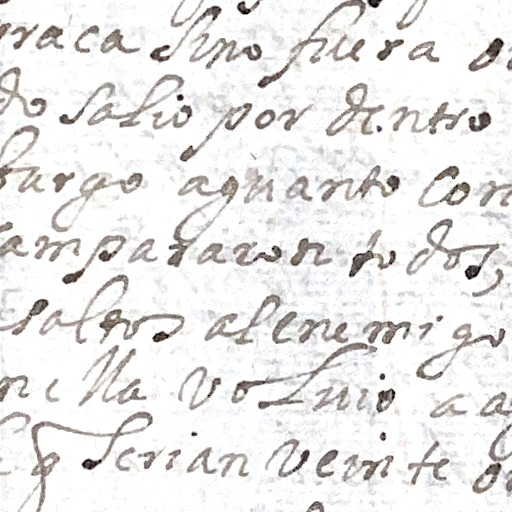 raca sino fuera
do salio por dentro
burgo aguanto con
ampararon todos,
saltos al enemigo
nella voluio a a
q serian veinte